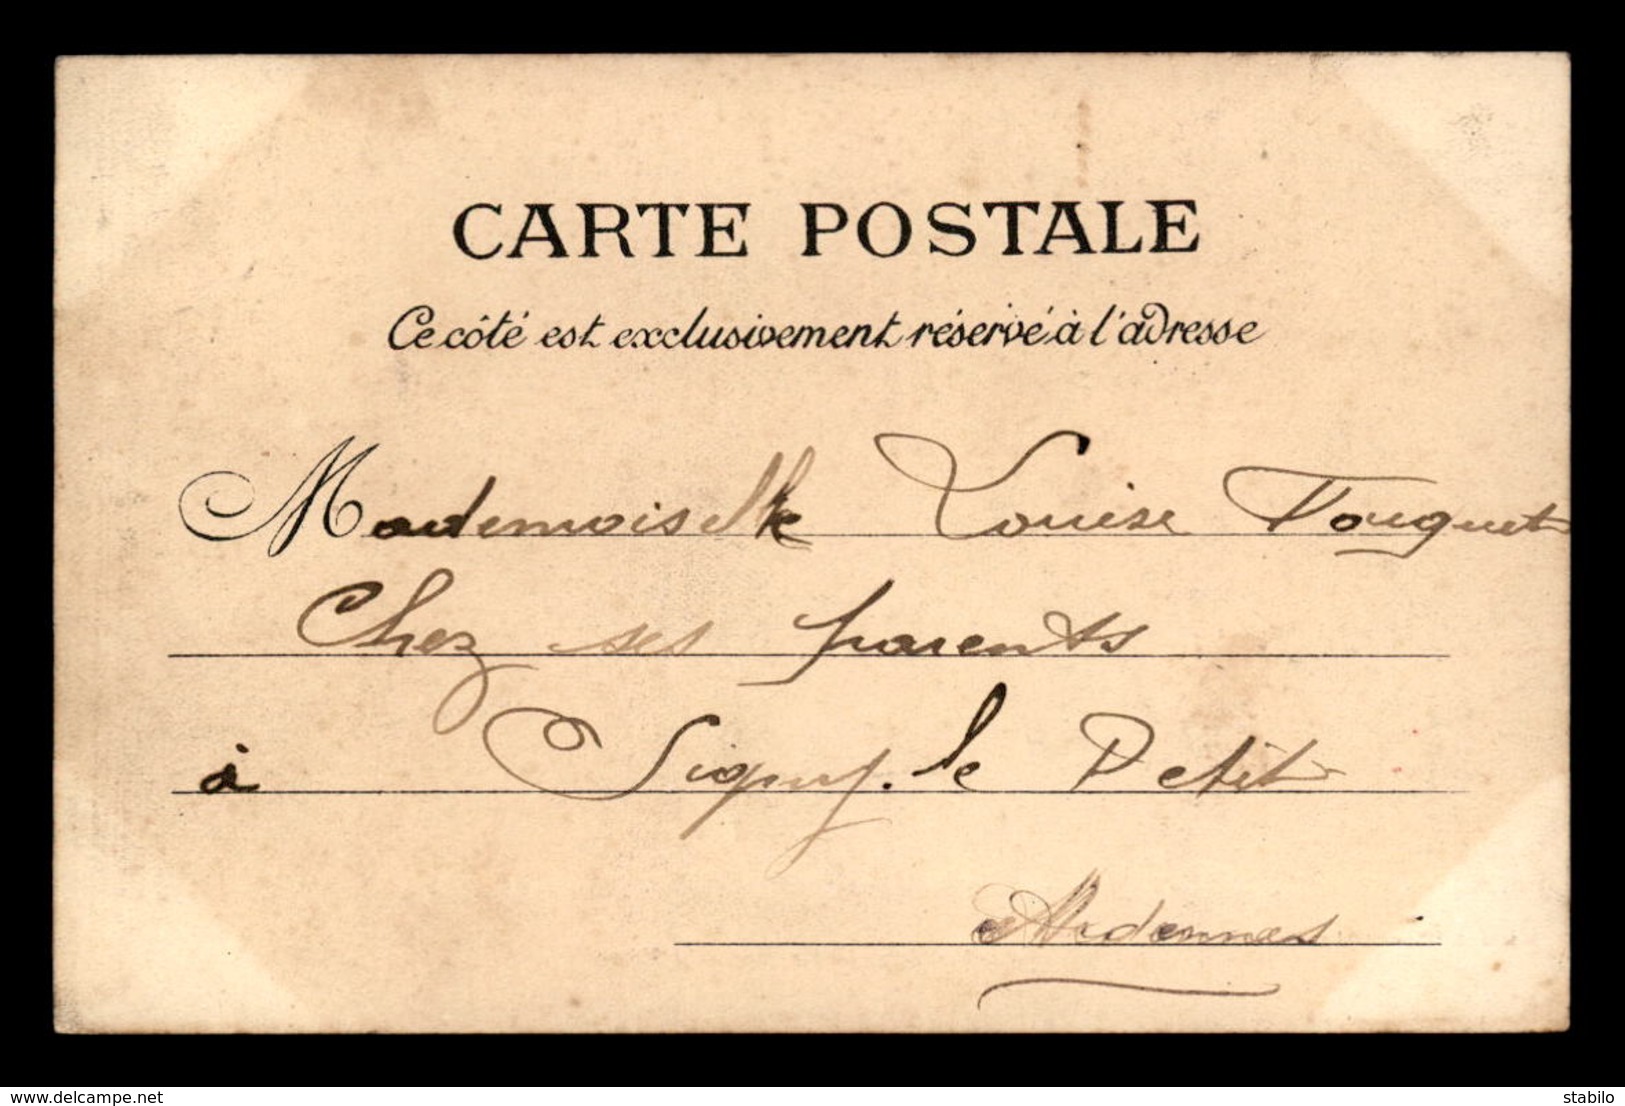 CARTE POSTALE
Ce côté est exclusivement réservé à l'adresse
Mademoiselle Louise Fouquet
Chez ses parents
à Signy-le Petit
Ardennes
www.delcampe.net
stabilo